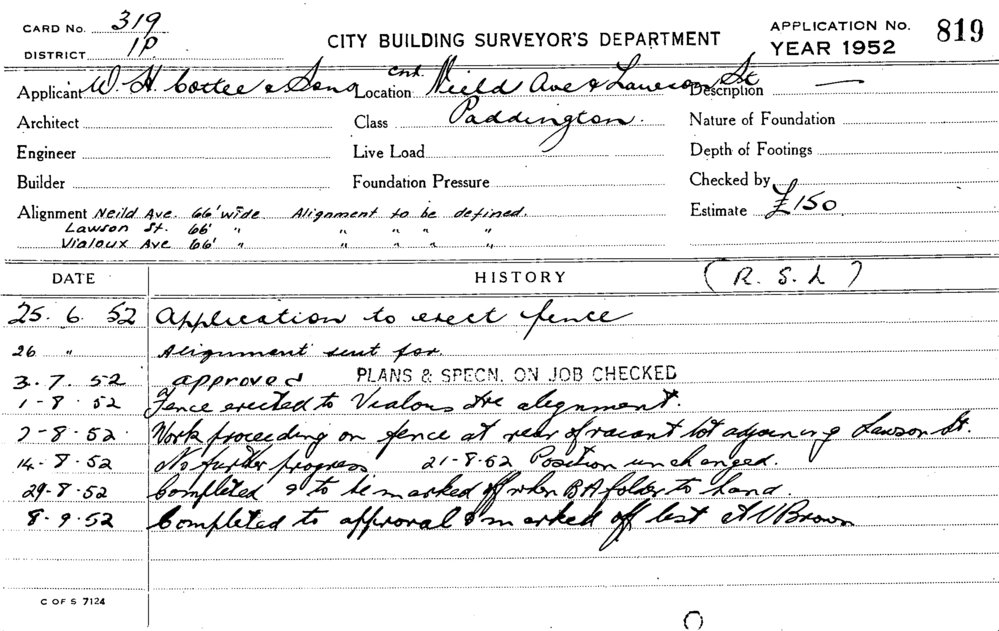 CARD No. 319
DISTRICT 1P
CITY BUILDING SURVEYOR'S DEPARTMENT
APPLICATION No. 819
YEAR 1952
Applicant W. H. Cottee & Sons Location Cnr. Neild Ave & Lawson St Description —
Architect Class Paddington. Nature of Foundation
Engineer Live Load Depth of Footings
Builder Foundation Pressure Checked by
Alignment Neild Ave. 66' wide Alignment to be defined. Estimate £150
Lawson St. 66' " " " " "
Vialoux Ave 66' " " " " "
DATE HISTORY (R. S. L)
25. 6. 52 Application to erect fence
26 " Alignment sent for.
3. 7. 52 approved PLANS & SPECN. ON JOB CHECKED
1-8. 52 Fence erected to Vialoux Ave alignment.
7-8. 52 Work proceeding on fence at rear of vacant lot adjoining Lawson St.
14-8. 52 No further progress 21-8.52 Position unchanged.
29-8. 52 Completed & to be marked off when BA folder to hand.
8. 9. 52 Completed to approval & marked off list A V Brown
C OF S 7124